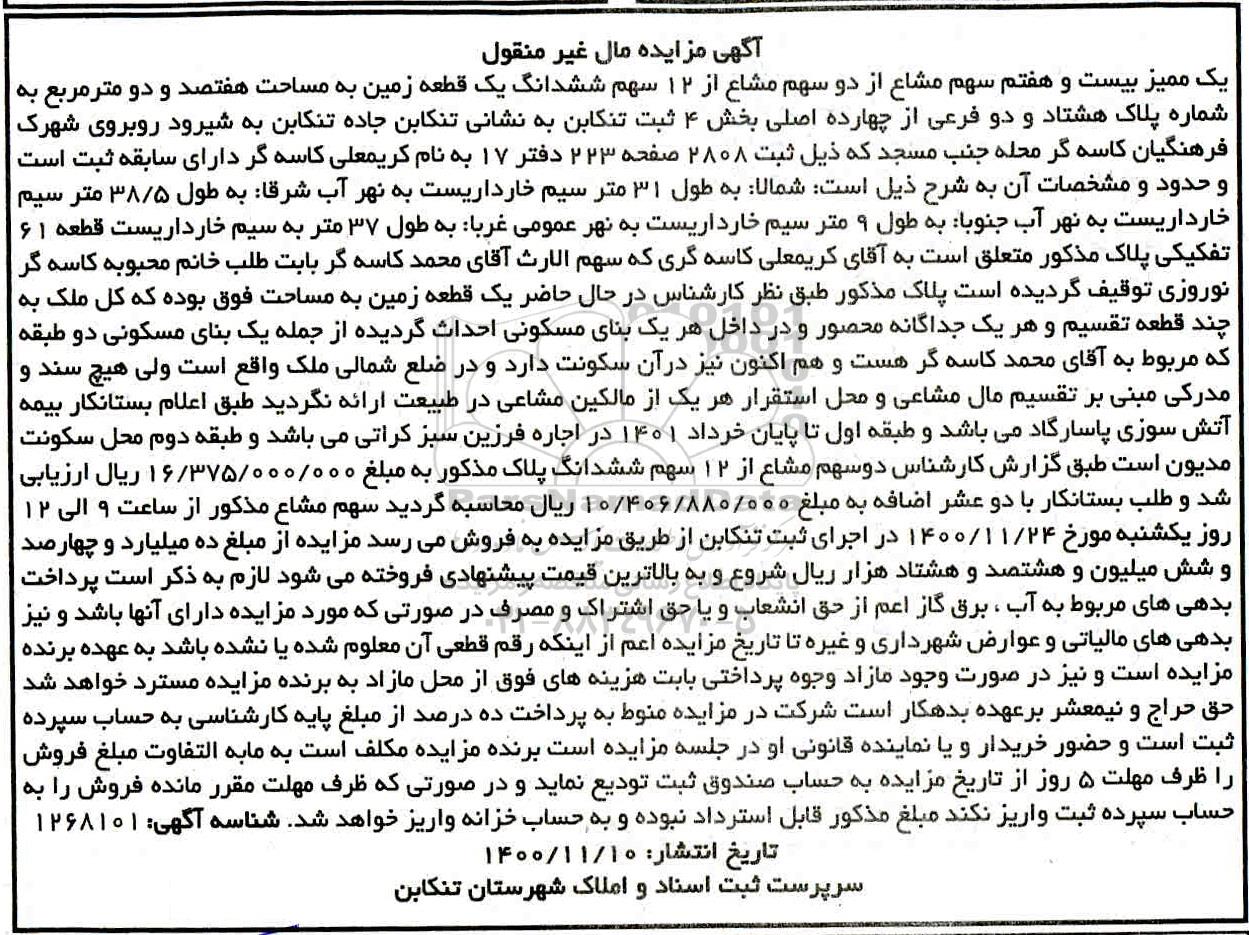 آگهی مزایده مال غیر منقول
یک ممیز بیست و هفتم سهم مشاع از دو سهم مشاع از ۱۲ سهم ششدانگ یک قطعه زمین به مساحت هفتصد و دو مترمربع به
شماره پلاک هشتاد و دو فرعی از چهارده اصلی بخش ۴ ثبت تنکابن به نشانی تنکابن جاده تنکابن به شیرود روبروی شهرک
فرهنگیان کاسه گر محله جنب مسجد که ذیل ثبت ۲۸۰۸ صفحه ۲۲۳ دفتر ۱۷ به نام کریمعلی کاسه گر دارای سابقه ثبت است
و حدود و مشخصات آن به شرح ذیل است: شمالا: به طول ۳۱ متر سیم خارداریست به نهر آب شرقا: به طول ۳۸/۵ متر سیم
خارداریست به نهر آب جنوبا: به طول ۹ متر سیم خارداریست به نهر عمومی غربا: به طول ۳۷ متر به سیم خارداریست قطعه ۶۱
تفکیکی پلاک مذکور متعلق است به آقای کریمعلی کاسه گری که سهم الارث آقای محمد کاسه گر بابت طلب خانم محبوبه کاسه گر
نوروزی توقیف گردیده است پلاک مذکور طبق نظر کارشناس در حال حاضر یک قطعه زمین به مساحت فوق بوده که کل ملک به
چند قطعه تقسیم و هر یک جداگانه محصور و در داخل هر یک بنای مسکونی احداث گردیده از جمله یک بنای مسکونی دو طبقه
که مربوط به آقای محمد کاسه گر هست و هم اکنون نیز درآن سکونت دارد و در ضلع شمالی ملک واقع است ولی هیچ سند و
مدرکی مبنی بر تقسیم مال مشاعی و محل استقرار هر یک از مالکین مشاعی در طبیعت ارائه نگردید طبق اعلام بستانکار بیمه
آتش سوزی پاسارگاد می باشد و طبقه اول تا پایان خرداد ۱۴۰۱ در اجاره فرزین سبز کراتی می باشد و طبقه دوم محل سکونت
مدیون است طبق گزارش کارشناس دوسهم مشاع از ۱۲ سهم ششدانگ پلاک مذکور به مبلغ ۱۶/۳۷۵/۰۰۰/۰۰۰ ریال ارزیابی
شد و طلب بستانکار با دو عشر اضافه به مبلغ ۱۰/۴۰۶/۸۸۰/۰۰۰ ریال محاسبه گردید سهم مشاع مذکور از ساعت ۹ الی ۱۲
روز یکشنبه مورخ ۱۴۰۰/۱۱/۲۴ در اجرای ثبت تنکابن از طریق مزایده به فروش می رسد مزایده از مبلغ ده میلیارد و چهارصد
و شش میلیون و هشتصد و هشتاد هزار ریال شروع و به بالاترین قیمت پیشنهادی فروخته می شود لازم به ذکر است پرداخت
بدهی های مربوط به آب ، برق گاز اعم از حق انشعاب و یا حق اشتراک و مصرف در صورتی که مورد مزایده دارای آنها باشد و نیز
بدهی های مالیاتی و عوارض شهرداری و غیره تا تاریخ مزایده اعم از اینکه رقم قطعی آن معلوم شده یا نشده باشد به عهده برنده
مزایده است و نیز در صورت وجود مازاد وجوه پرداختی بابت هزینه های فوق از محل مازاد به برنده مزایده مسترد خواهد شد
حق حراج و نیمعشر برعهده بدهکار است شرکت در مزایده منوط به پرداخت ده درصد از مبلغ پایه کارشناسی به حساب سپرده
ثبت است و حضور خریدار و یا نماینده قانونی او در جلسه مزایده است برنده مزایده مکلف است به مابه التفاوت مبلغ فروش
را ظرف مهلت ۵ روز از تاریخ مزایده به حساب صندوق ثبت تودیع نماید و در صورتی که ظرف مهلت مقرر مانده فروش را به
حساب سپرده ثبت واریز نکند مبلغ مذکور قابل استرداد نبوده و به حساب خزانه واریز خواهد شد. شناسه آگهی: ۱۲۶۸۱۰۱
تاریخ انتشار: ۱۴۰۰/۱۱/۱۰
سرپرست ثبت اسناد و املاک شهرستان تنکابن